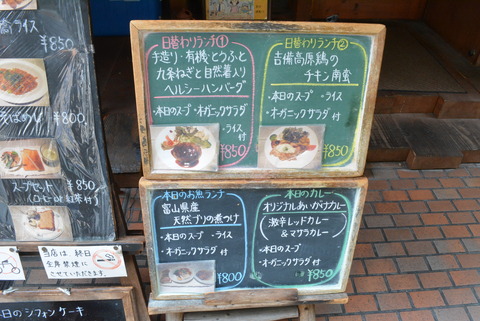 ライス
¥850
¥800
スープセット
¥850
当店は 終日
全席禁煙に
させていただきます。
本日のシフォンケーキ
日替わりランチ①
手造り・有機とうふと
九条ねぎと自然薯入り
ヘルシーハンバーグ
・本日のスープ・オーガニックサラダ
・ライス
付
¥850
日替わりランチ②
吉備高原鶏の
チキン南蛮
・本日のスープ ・ライス
・オーガニックサラダ 付
¥850
本日のお魚ランチ
富山県産
天然ブリの煮つけ
・本日のスープ ・ライス
・オーガニックサラダ
付
¥800
本日のカレー
オリジナルあいがけカレー
(激辛レッドカレー
&マサラカレー)
・本日のスープ
・オーガニックサラダ付
¥850